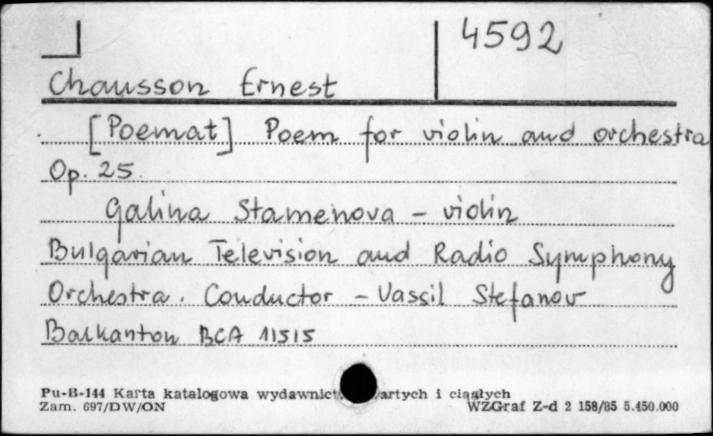 4592
Chausson Ernest
[Poemat] Poem for violin and orchestra
Op. 25
Galina Stamenova – violin
Bulgarian Television and Radio Symphony
Orchestra. Conductor – Vassil Stefanov
Balkanton BCA 11515
Pu-B-144 Karta katalogowa wydawnict artych i ciągłych
Zam. 697/DW/ON WZGraf Z-d 2 158/85 5.450.000